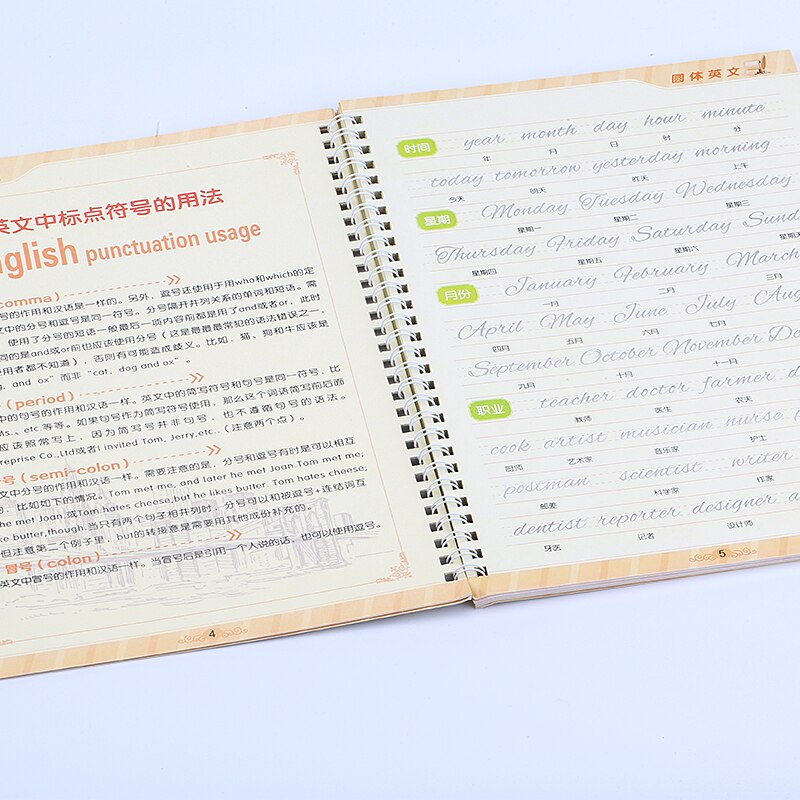 英文中标点符号的用法
glish punctuation usage
comma)
号的作用和汉语是一样的。另外，逗号还使用于用who和which的定
文中的分号和逗号是同一符号。分号隔开并列关系的单词和短语。需
使用了分号的短语一般最后一项内容前都是用了and或者or，此时
同的是and或or前也应该使用分号（这是最最最常犯的语法错误之一，
使用者都不知道），否则有可能造成歧义。比如，猫、狗和牛应该是
and ox" 而非 "cat, dog and ox" 。
(period)
中的句号的作用和汉语一样。英文中的简写符号和句号是同一符号，比
etc等等。如果句号作为简写符号使用，那么这个词语简写前后面
应该照常写上，因为简写号并非句号，也不遵循句号的语法。
reprise Co.,Ltd或者I invited Tom, Jerry,etc..（注意两个点）。
号 (semi-colon)
文中分号的作用和汉语一样。需要注意的是，分号和逗号有时是可以相互
比如如下的情况。Tom met me, and later he met Joan.Tom met me;
he met Joan.或Tom hates cheese,but he likes butter. Tom hates cheese;
he likes butter,though.当只有两个句子相并列时，分号可以和被逗号+连结词互
但注意第二个例子里，but的转接意是需要用其他成份补充的。
冒号 (colon)
英文中冒号的作用和汉语一样。当冒号后是引用一个人说的话，也可以使用逗号。
4
圆体英文
时间 year month day hour minute
年 月 日 时 分
today tomorrow yesterday morning
今天 明天 昨天 上午
星期 Monday Tuesday Wednesday
星期一 星期二 星期三
Thursday Friday Saturday Sund
星期四 星期五 星期六 星期天
月份 January February March
一月 二月 三月
April May June July Aug
四月 五月 六月 七月
September October November De
九月 十月 十一月
职业 teacher doctor farmer d
教师 医生 农夫
cook artist musician nurse
厨师 艺术家 音乐家 护士
postman scientist writer
邮差 科学家 作家
dentist reporter designer a
牙医 记者 设计师
5